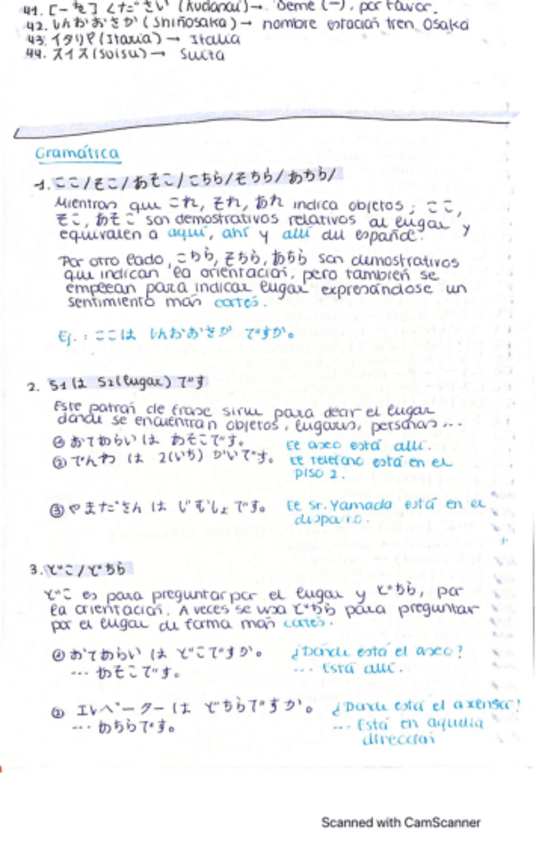 41. [-を] ください (kudasai) → Deme (-), por favor.
42. しんおおさか (Shiñosaka) → nombre estación tren Osaka
43. イタリア (Itaria) → Italia
44. スイス (Suisu) → Suiza
Gramática
1. ここ/そこ/あそこ/こちら/そちら/あちら/
Mientras que これ, それ, あれ indica objetos; ここ,
そこ, あそこ son demostrativos relativos al lugar y
equivalen a aquí, ahí y allí del español.
Por otro lado, こちら, そちら, あちら son demostrativos
que indican la orientación, pero también se
emplean para indicar lugar expresándose un
sentimiento más cortés.
Ej.: ここは しんおおさか ですか。
2. S1 は S2(lugar) です
Este patrón de frase sirve para decir el lugar
donde se encuentran objetos, lugares, personas...
① おてあらい は あそこです。 El aseo está allí.
② でんわ は 2(いち) かいです。 El teléfono está en el
piso 2.
③ やまださん は じむしょです。 El Sr. Yamada está en el
despacho.
3. どこ/どちら
どこ es para preguntar por el lugar y どちら, por
la orientación. A veces se usa どちら para preguntar
por el lugar de forma más cortés.
① おてあらい は どこですか。 ¿Dónde está el aseo?
... あそこです。 ... Está allí.
② エレベーター は どちらですか。 ¿Dónde está el ascensor?
... あちらです。 ... Está en aquella
dirección
Scanned with CamScanner